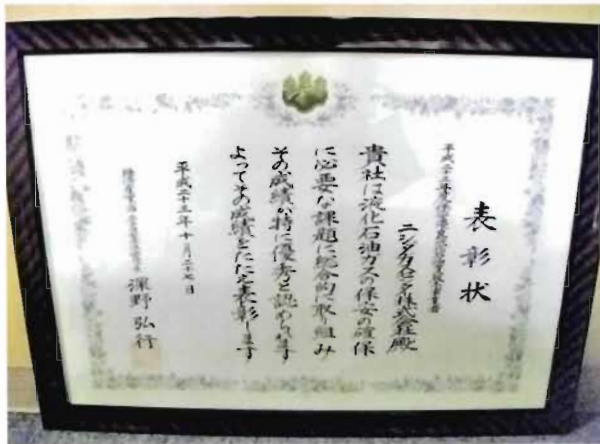 表彰状
ニシダカ株式会社殿
貴社は液化石油ガスの保安の確保
に必要な課題に総合的に取り組み
その成績が特に優秀と認められます
よってその成績をたたえ表彰します
平成二十三年十月二十七日
深野弘行